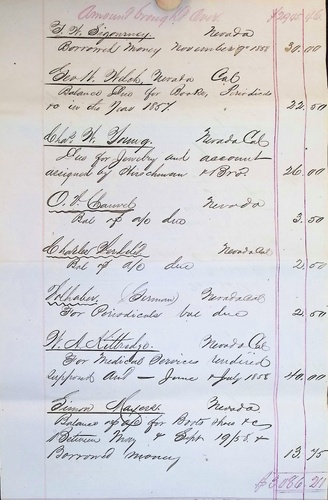 Amount brought over
T. W. Sigourney Nevada
Borrowed Money November 9th 1858 30.00
Geo. W. Welch, Nevada Cal
Balance Due for Books, Periodicals
&c in the Year 1857. 22.50
Chas. W. Young. Nevada Cal
Due for Jewelry and account
assigned by Hirschman & Bro. 26.00
Nevada
Bal of a/c due 3.50
Charles Nevada Cal
Bal of a/c due 2.50
(German) Nevada Cal
For Periodicals bal due 2.50
W. A. Kittredge Nevada Cal
For Medical Services rendered
June & July 1858 40.00
Simon Nevada
Balance of a/c for Boots shoes &c
Between May & Sept 19/58 &
Borrowed money 13.75
$3,086.21